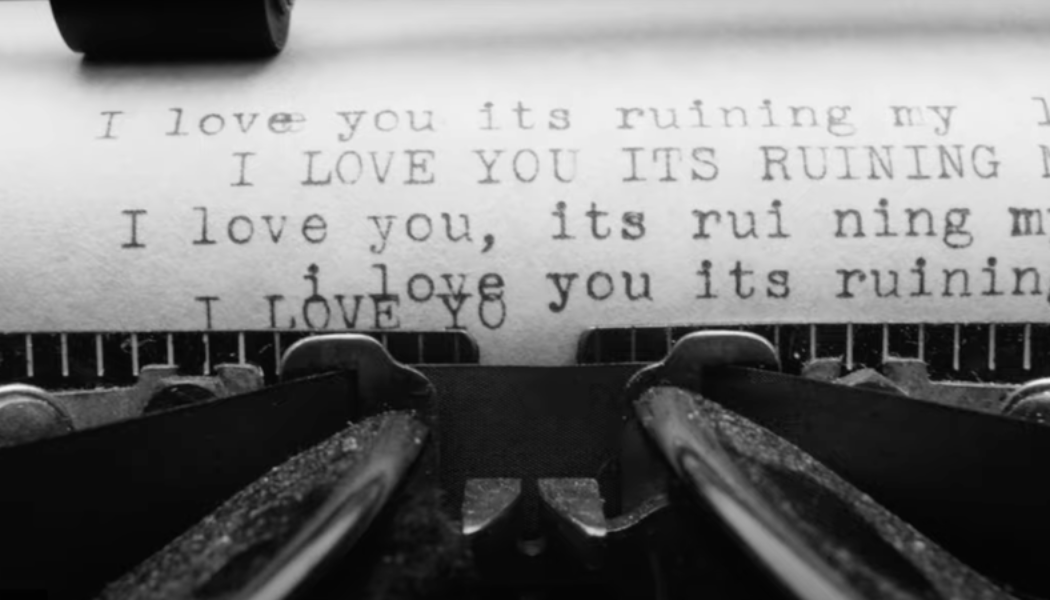 I love you its ruining my l
I LOVE YOU ITS RUINING M
I love you, its rui ning my
i love you its ruining
I LOVE YO